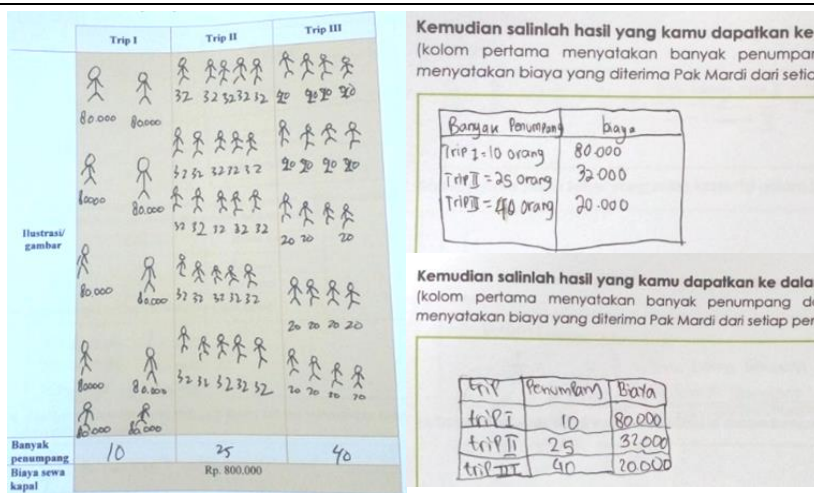 Trip I
Trip II
Trip III
Ilustrasi/
gambar
80.000 80000
80.000
80.000 80.000
80000 80.000
80.000 80.000
32 32 32 32 32
32 32 32 32 32
32 32 32 32 32
32 32 32 32 32
32 32 32 32 32
20 20 20 20
20 20 20 20
20 20 20
20 20 20 20
20 20 20 20
Banyak
penumpang
10
25
40
Biaya sewa
kapal
Rp. 800.000
Kemudian salinlah hasil yang kamu dapatkan ke
(kolom pertama menyatakan banyak penumpa
menyatakan biaya yang diterima Pak Mardi dari setia
Banyak Penumpang biaya
Trip I = 10 orang 80.000
Trip II = 25 orang 32.000
Trip III = 40 orang 20.000
Kemudian salinlah hasil yang kamu dapatkan ke dala
(kolom pertama menyatakan banyak penumpang d
menyatakan biaya yang diterima Pak Mardi dari setiap per
trip Penumpang Biaya
trip I 10 80.000
trip II 25 32.000
trip III 40 20.000